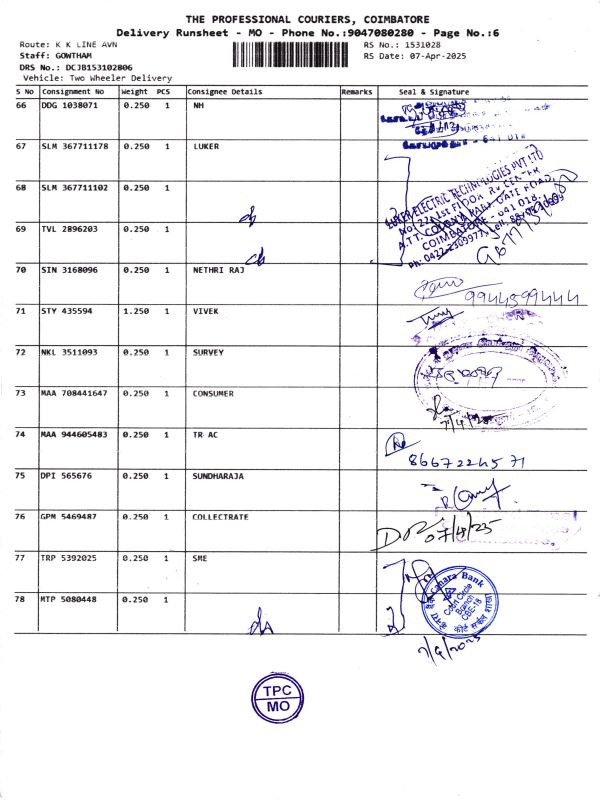 THE PROFESSIONAL COURIERS, COIMBATORE
Delivery Runsheet - MO - Phone No.:9047080280 - Page No.:6
Route: K K LINE AVN
Staff: GOWTHAM
DRS No.: DCJB153102806
Vehicle: Two Wheeler Delivery
RS No.: 1531028
RS Date: 07-Apr-2025
S No Consignment No Weight PCS Consignee Details Remarks Seal & Signature
66 DDG 1038071 0.250 1 NH
67 SLM 367711178 0.250 1 LUKER
68 SLM 367711102 0.250 1
LUKER ELECTRIC TECHNOLOGIES PVT LTD
A.T.T. COLONY
COIMBATORE - 641 018.
69 TVL 2896203 0.250 1
70 SIN 3168096 0.250 1 NETHRI RAJ
9944599444
71 STY 435594 1.250 1 VIVEK
72 NKL 3511093 0.250 1 SURVEY
73 MAA 708441647 0.250 1 CONSUMER
74 MAA 944605483 0.250 1 TR AC
8667224571
75 DPI 565676 0.250 1 SUNDHARAJA
76 GPM 5469487 0.250 1 COLLECTRATE
07/4/25
77 TRP 5392025 0.250 1 SME
78 MTP 5080448 0.250 1
Canara Bank
Branch
CBE-18
TPC
MO